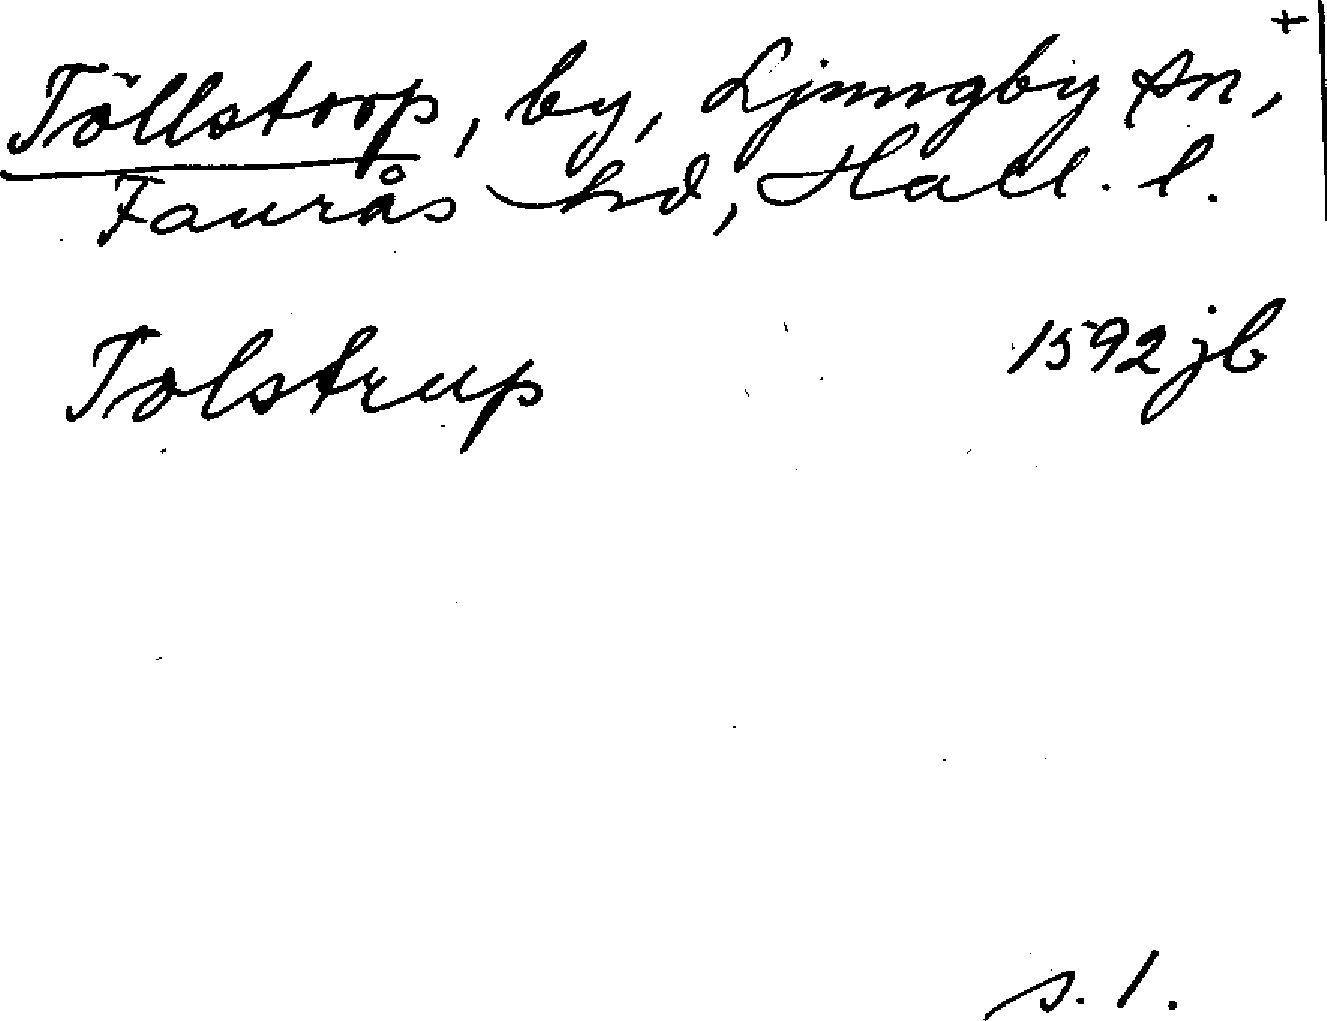 +
Töllstorp, by, Ljungby sn,
Faurås hd, Hall. l.
Tolstrup 1592 jb
s. 1.